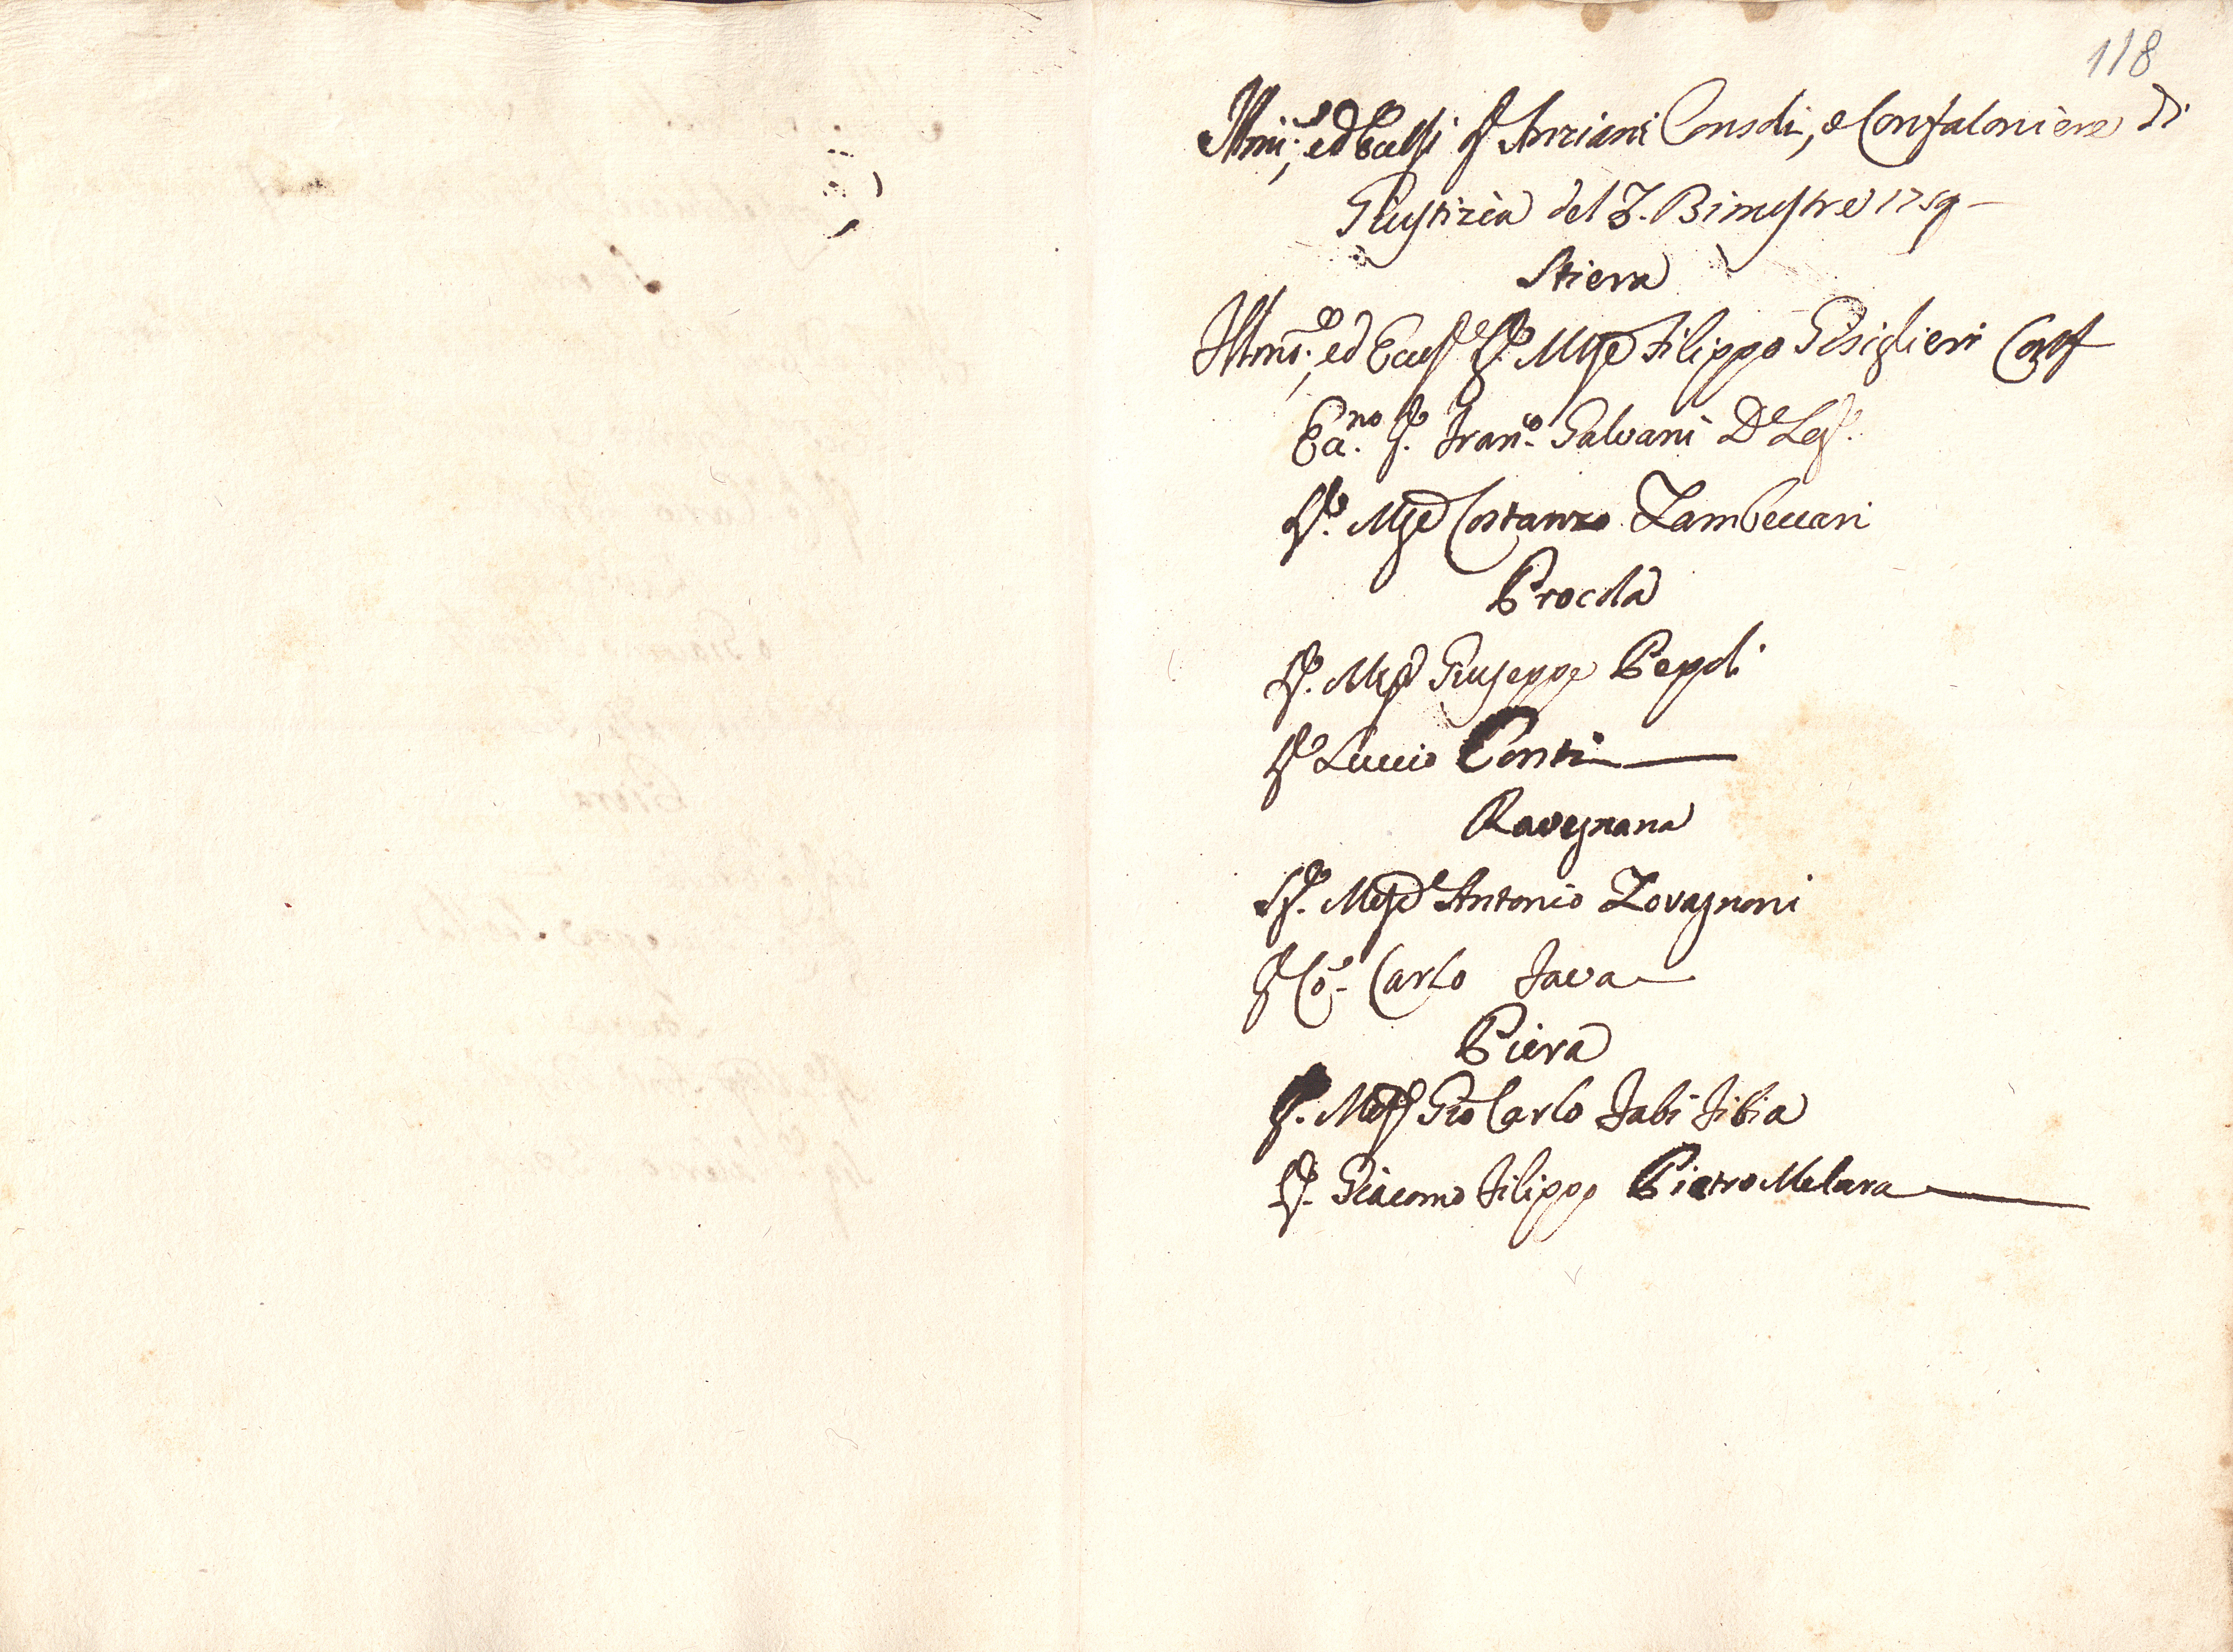 118
Illmi, ed Eccelsi SS. Anziani Consoli, e Confaloniere di
Giustizia del 3. Bimestre 1759
Stiera
Illmo, ed Eccelso Sr. Mse Filippo Ghisiglieri Conf
Ecc.mo Sr. Fran.co Galvani Dr Leg.
Sr. Mse Costanzo Zambeccari
Procola
Sr. Mse Giuseppe Pepoli
Sr Luccio Conti
Ravegnana
Sr. Mse Antonio Zovagnoni
Sr Co. Carlo Fava
Piera
Sr. Mse Gio Carlo Fabi Fibia
Sr. Giacomo Filippo Pietro Melara